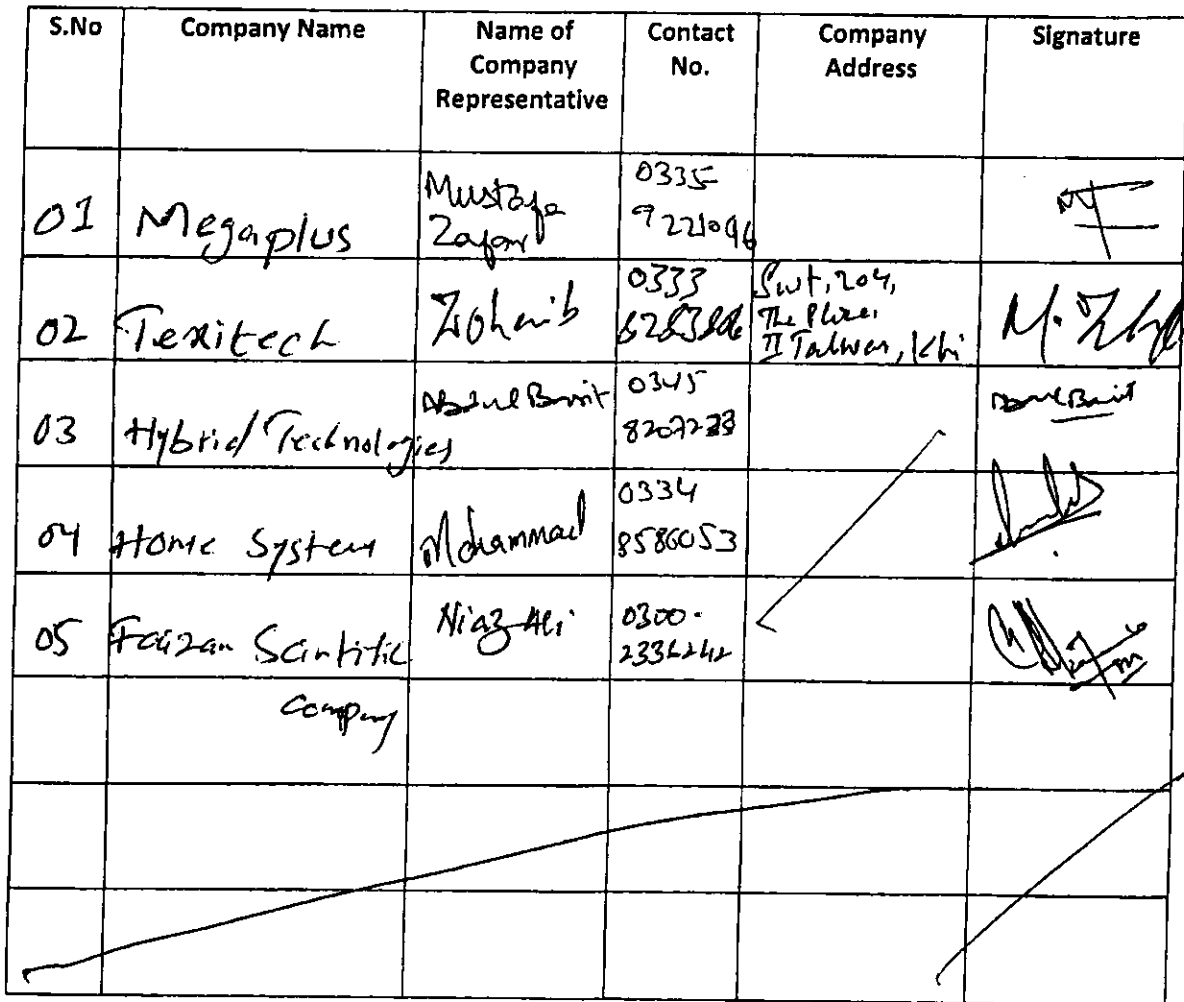 S.No Company Name Name of Company Representative Contact No. Company Address Signature
01 Megaplus Mustafa Zafar 0335 9221096
02 Texitech Zohaib 0333 The Place, II Talwar, Khi
03 Hybrid Technologies 0345
04 Home System Mohammad 0334 8586053
05 Faizan Scintific Company Niaz Ali 0300-